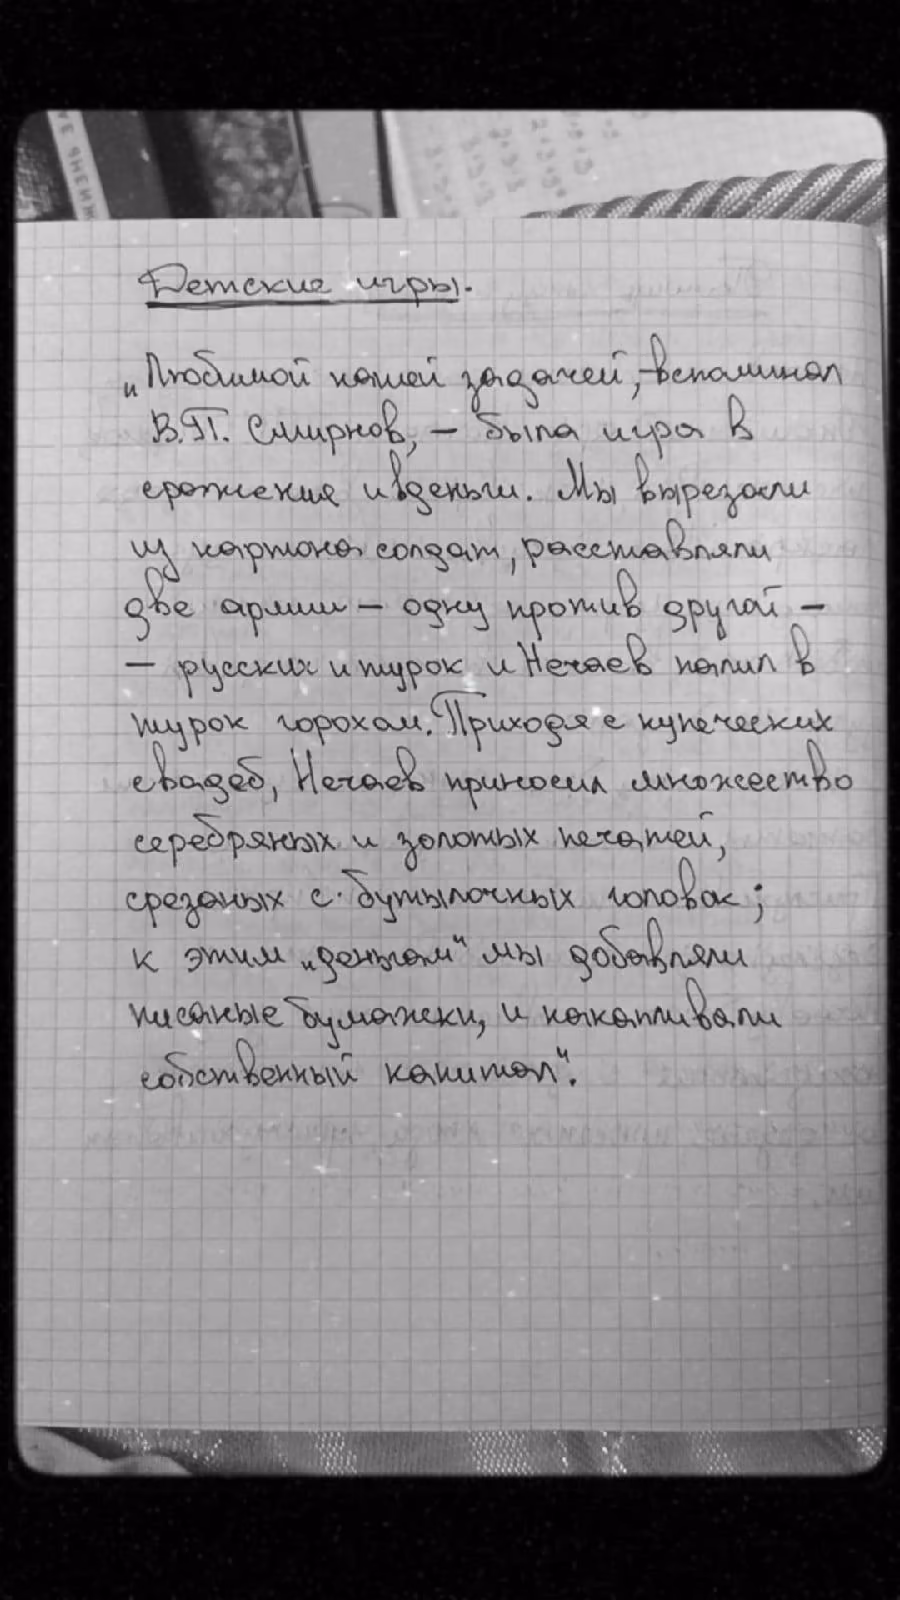 Детские игры.
„Любимой нашей задачей, – вспоминал
В.П. Смирнов, – была игра в
сражения и в деньги. Мы вырезали
из картона солдат, расставляли
две армии – одну против другой –
– русских и турок и Нечаев палил в
турок горохом. Приходя с купеческих
свадеб, Нечаев приносил множество
серебряных и золотых печатей,
срезаных с бутылочных головок;
к этим „деньгам" мы добавляли
писаные бумажки, и накапливали
собственный капитал".